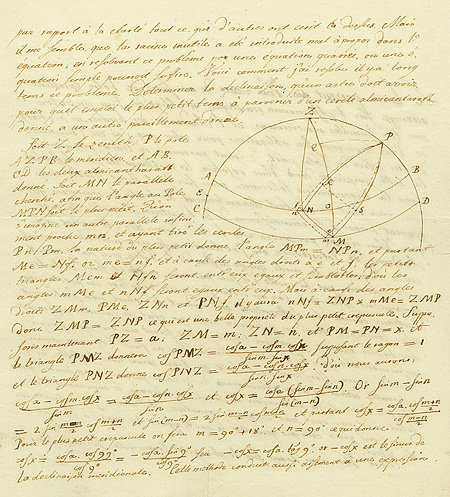 par raport à la clarté tout ce, qui d'autres ont ecrit là dessus. Mais
il me semble, que la racine inutile a été introduite mal à propos dans l'
equation, en resolvant ce problème par une equation quarrée, ou une é-
quation simple pouvoit sufire. Voici comment j'ai resolu il y a long
tems ce problème. Determiner la declinaison, qu'un astre doit avoir,
pour qu'il emploie le plus petit tems à parvenir d'un cercle almucantarath
donné, à un autre pareillement donné.
Soit Z. le zenith, P le pole
AZPB le meridien, et AB
CD les deux almicantharath
donnés. Soit MN le parallele
cherché, afin que l'angle au Pole
MPN soit le plus petit.
un autre parallele infini-
ment proche mn, et ayant tiré les cercles
Pn f Pm, la nature du plus petit donne l'angle MPm = NPn, et partant
Me = Nf, or me = nf, et à cause des angles droits à e et f, les petits
triangles Mem et Nfn seront entr'eux egaux et semblables, d'où les
angles mMe et nNf seront egaux entr'eux. Mais à cause des angles
droits ZMm, PMe, ZNn et PNf, il y aura nNf = ZNP & mMe = ZMP
donc ZMP = ZNP ce qui est une belle proprieté du plus petit crepuscule. Suppo-
sons maintenant PZ = a. ZM = m. ZN = n. et PM = PN = x. et
le triangle PMZ donnera cos PMZ = cos a − cos m. cos x / sin m. sin x supposant le rayon = 1
et le triangle PNZ donne cos PNZ = cos a − cos n. cos x / sin n. sin x d'où nous aurons:
cos a − cos m. cos x / sin m = cos a − cos n. cos x / sin n et cos x = cos a (sin m − sin n) / sin (m − n) Or sin m − sin n
= 2 sin m−n/2 cos m+n/2 et sin (m−n) = 2 sin m−n/2 cos m−n/2 et partant cos x = cos a. cos m+n/2 / cos m−n/2
Pour le plus petit crepuscule on fera m = 90° + 18°. et n = 90°
cos x = cos a. cos 99° / cos 9° = − cos a. sin 9° / cos 9° seu − cos x = cos a. tang 9°. or − cos x est le sinus de
la declinaison meridionale. Cette methode conduit aussi aisement à une expression
Z
P
Q
A
E
C
B
D
N
O
S
M
n
m
e
f